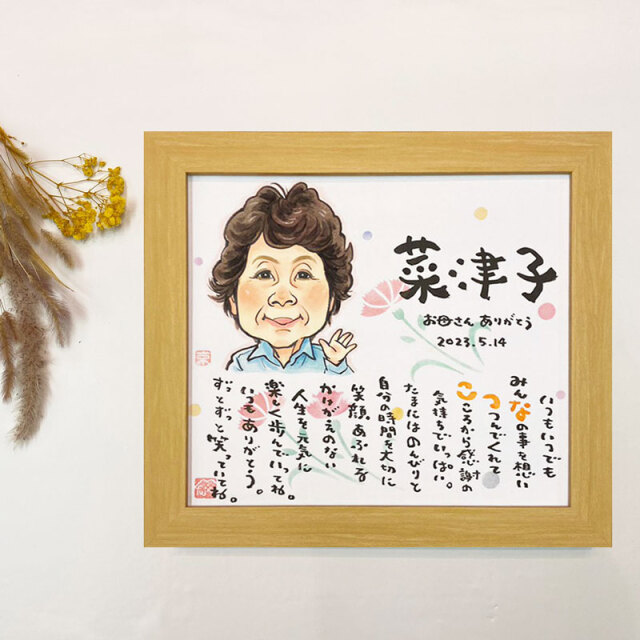 菜津子
お母さんありがとう
2023.5.14
いつもいつでも
みんなの事を想い
つつんでくれて
こころから感謝の
気持ちでいっぱい。
たまにはのんびりと
自分の時間を大切に
笑顔あふれる
かけがえのない
人生を元気に
楽しく歩んでいってね。
いつもありがとう。
ずっとずっと笑っていてね。